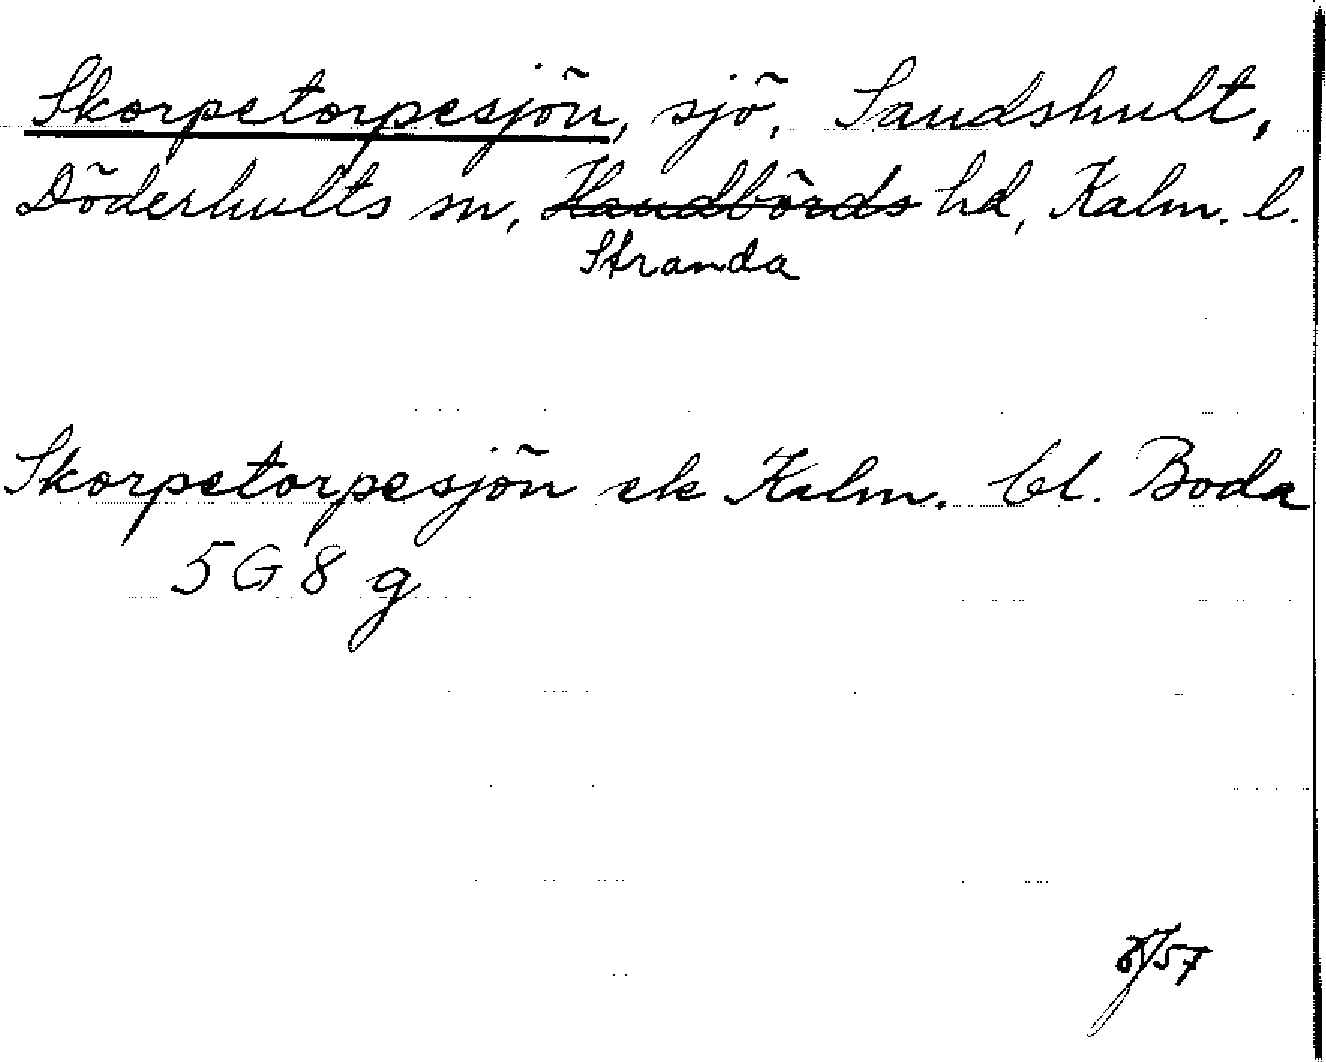 Skorpetorpesjön, sjö, Sandshult,
Döderhults sn, Handbörds hd, Kalm. l.
Stranda
Skorpetorpesjön ek Kalm. bl. Boda
5 G 8 g